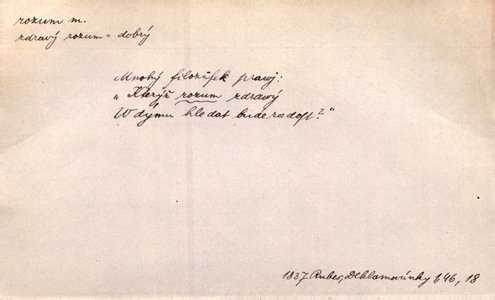 rozum m.
zdravý rozum = dobrý
Mnohý filozůfek prawj:
„Kterýž rozum zdrawý
W dýmu hledat bude radost?“
1837 Rubeš, Deklamovánky 1,46, 18